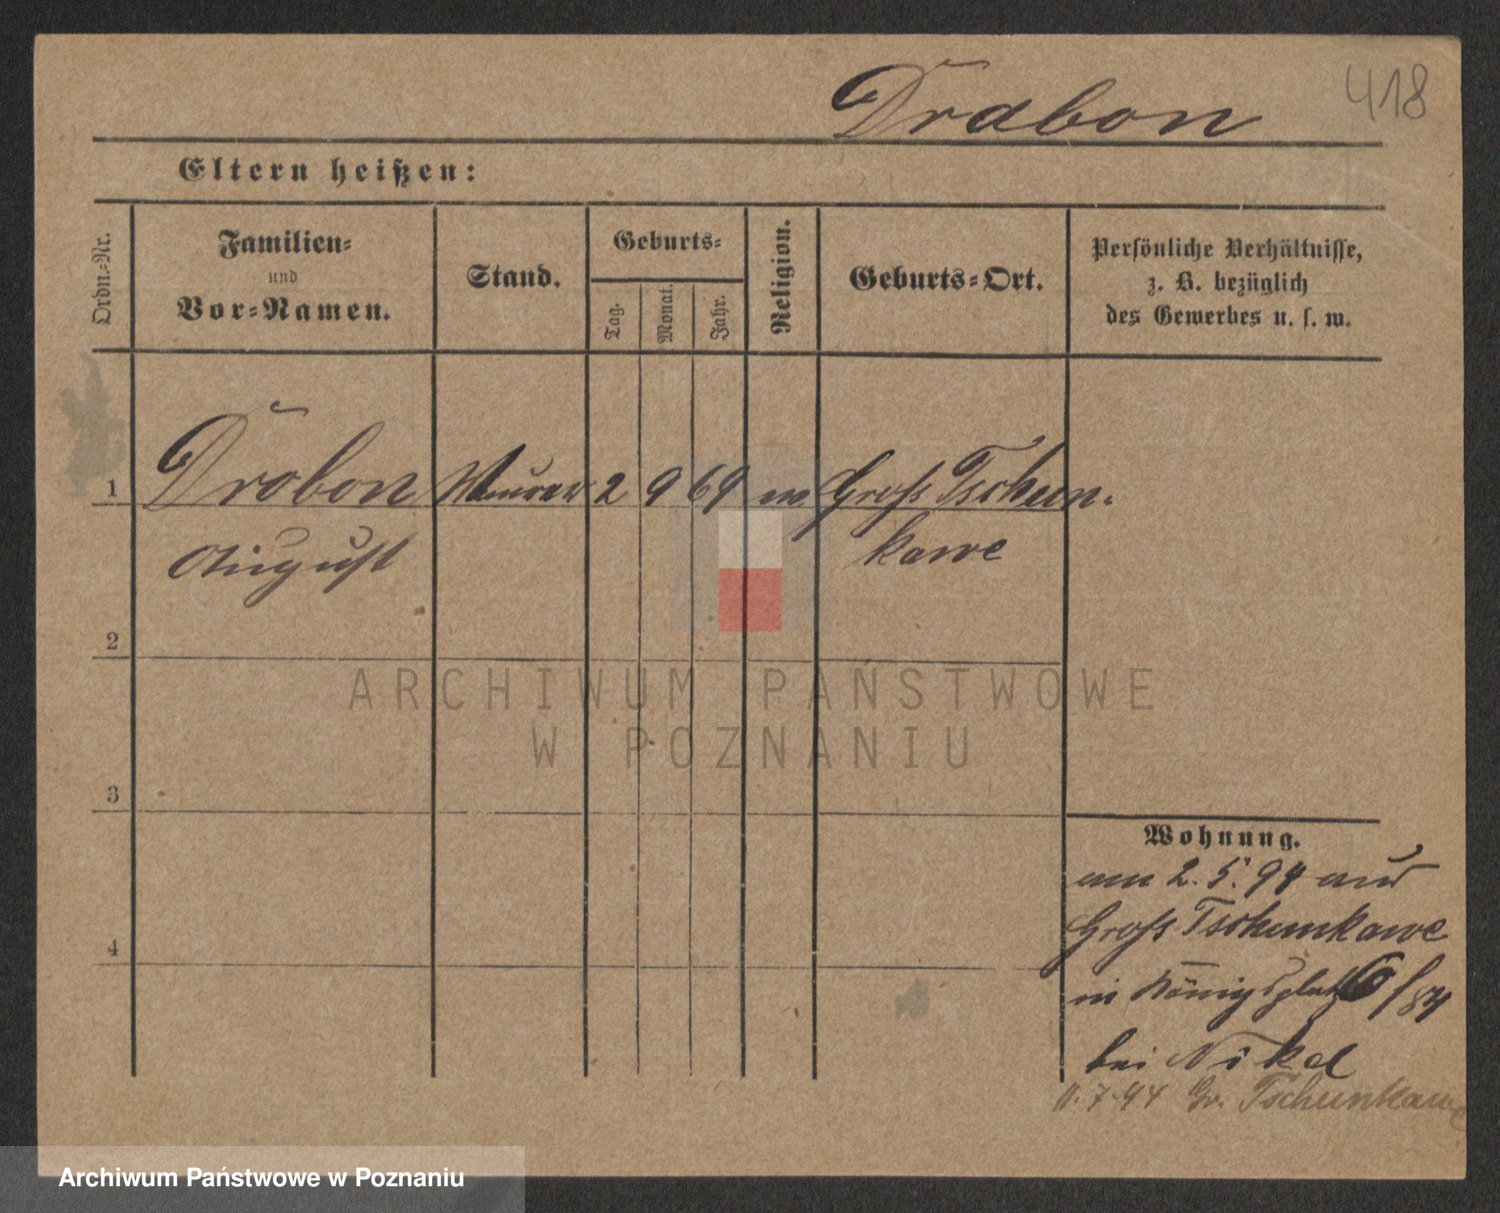 Drabon
418
Eltern heißen:
Ordn.=Nr.
Familien=
und
Vor=Namen.
Stand.
Geburts=
Tag.
Monat.
Jahr.
Religion.
Geburts=Ort.
Persönliche Verhältnisse,
z. B. bezüglich
des Gewerbes u. s. w.
1
Drobon Maurer 2 9 69 Groß Tschun-
August kawe
2
ARCHIWUM PAŃSTWOWE
W POZNANIU
3
Wohnung.
am 2. 5. 94 aus
Groß Tschunkawe
in Königsplatz 6
bei Nikel
11. 7. 94 Gr. Tschunkawe
4
Archiwum Państwowe w Poznaniu